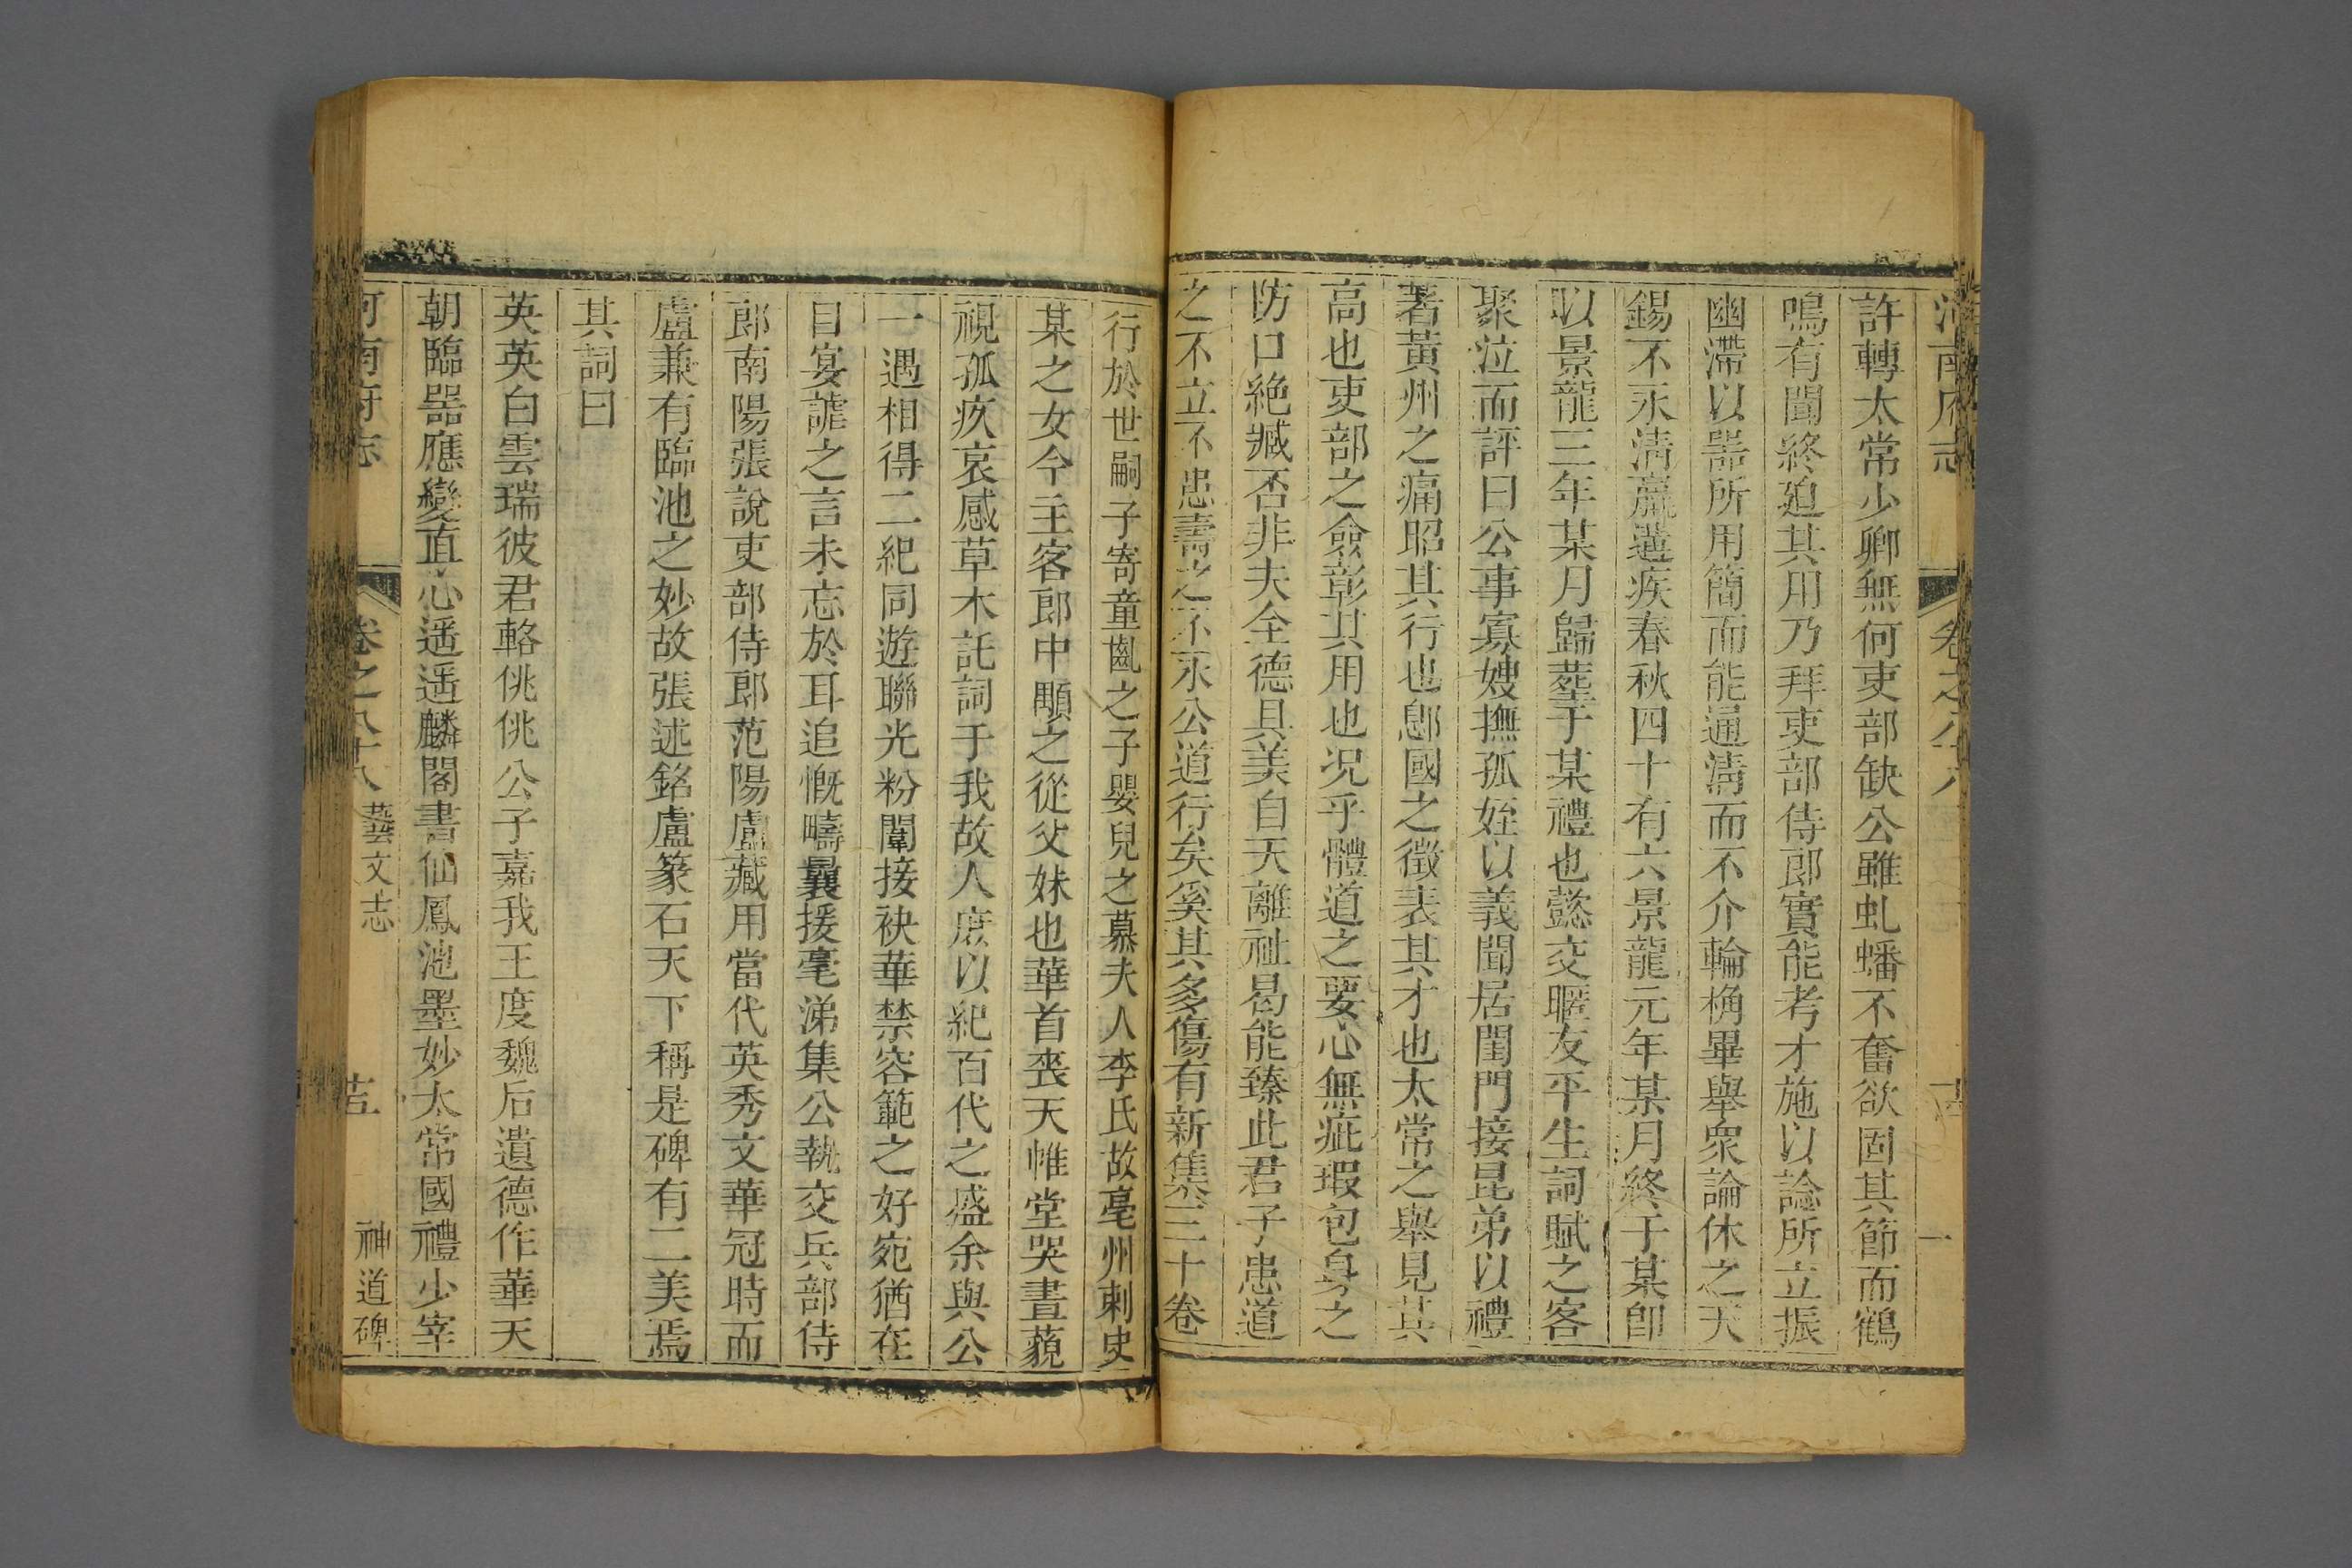 許轉太常少卿無何吏部缺公雖虬蟠不奮欲固其節而鶴
鳴有聞終廹其用乃拜吏部侍郎實能考才施以諗所立振
幽滯以器所用簡而能通淸而不介輪桷畢舉衆論休之天
錫不永淸羸遘疾春秋四十有六景龍元年某月終于某卽
以景龍三年某月歸塟于某禮也懿交暱友平生詞賦之客
聚泣而評曰公事寡嫂撫孤姪以義聞居閨門接昆弟以禮
著黃州之痛昭其行也郎國之徵表其才也太常之舉見其
高也吏部之僉彰其用也況乎體道之要心無疵瑕包身之
防口絶臧否非夫全德具美自天離祉曷能臻此君子患道
之不立不患壽之不永公道行矣奚其多傷有新集三十卷
行於世嗣子寄童齓之子嬰兒之慕夫人李氏故亳州刺史
某之女今主客郎中顒之從父妹也華首喪天帷堂哭晝藐
視孤疚哀感草木託詞于我故人庶以紀百代之盛余與公
一遇相得二紀同遊聯光粉闈接袂華禁容範之好宛猶在
目宴謔之言未忘於耳追慨疇曩援毫涕集公執交兵部侍
郎南陽張說吏部侍郎范陽盧藏用當代英秀文華冠時而
盧兼有臨池之妙故張述銘盧篆石天下稱是碑有二美焉
其詞曰
英英白雲瑞彼君輅佻佻公子嘉我王度魏后遺德作華天
朝臨器應變直心遥遥麟閣書仙鳳池墨妙太常國禮少宰
河南府志 卷之八十八 藝文志 神道碑